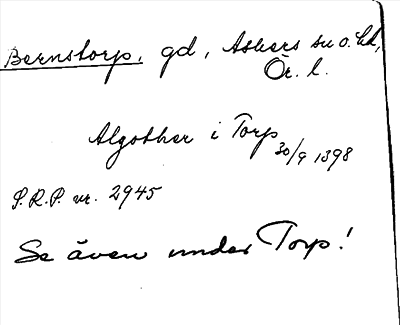 Bernstorp, gd, Askers sn o. hd,
Ör. l.
Algother i Torp
30/9 1398
S.R.P. nr. 2945
Se även under Torp!